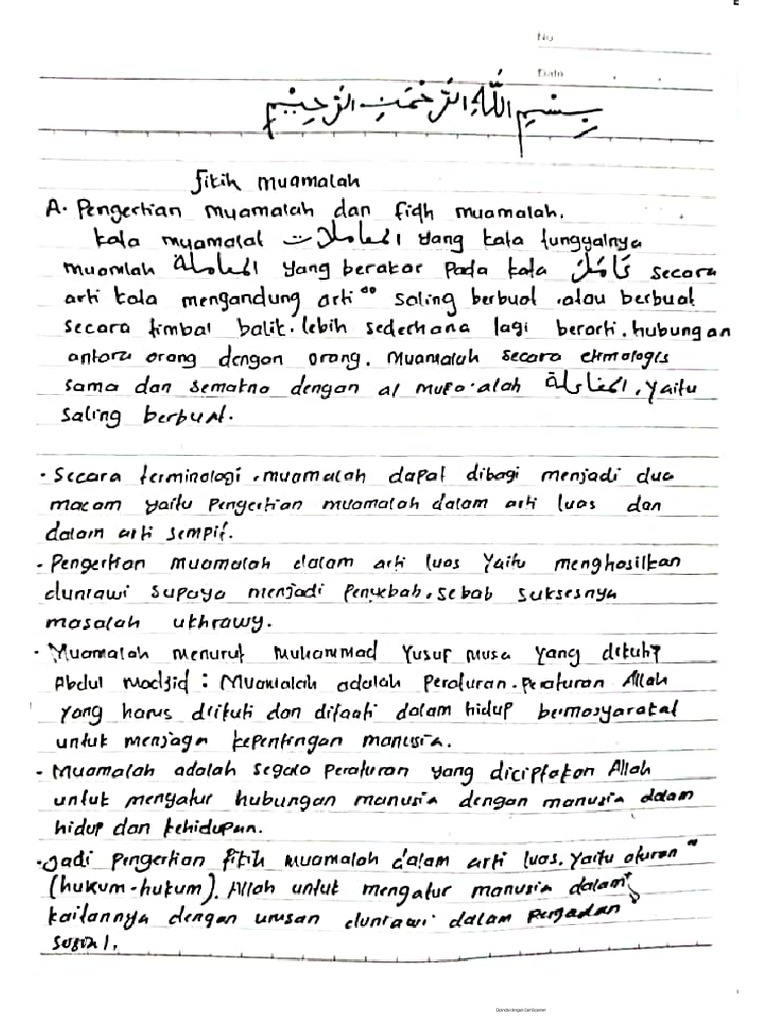 No
Date
بِسْمِ اللَّهِ الرَّحْمَنِ الرَّحِيْمِ
fikih muamalah
A. Pengertian muamalah dan fiqh muamalah.
kata muamalat المعاملات yang kata tunggalnya
muamlah المعاملة yang berakar pada kata عَامَلَ secara
arti kata mengandung arti" saling berbuat atau berbuat
secara timbal balik. lebih sederhana lagi berarti. hubungan
antara orang dengan orang. Muamalah secara etimologis
sama dan semakna dengan al mufa'alah المفاعلة, yaitu
saling berbuat.
• Secara terminologi, muamalah dapat dibagi menjadi dua
macam yaitu pengertian muamalah dalam arti luas dan
dalam arti sempit.
• Pengertian muamalah dalam arti luas yaitu menghasilkan
duniawi supaya menjadi penyebab, sebab suksesnya
masalah ukhrawy.
• Muamalah menurut Muhammad Yusuf Musa yang dikutip
Abdul Madjid : Muamalah adalah peraturan-peraturan Allah
yang harus diikuti dan ditaati dalam hidup bermasyarakat
untuk menjaga kepentingan manusia.
• Muamalah adalah segala peraturan yang diciptakan Allah
untuk mengatur hubungan manusia dengan manusia dalam
hidup dan kehidupan.
• Jadi pengertian fikih muamalah dalam arti luas, yaitu aturan"
(hukum-hukum). Allah untuk mengatur manusia dalam
kaitannya dengan urusan duniawi dalam pergaulan
sosial.
Dipindai dengan CamScanner